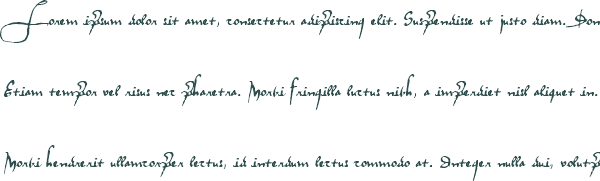 Lorem ipsum dolor sit amet, consectetur adipiscing elit. Suspendisse ut justo diam. Don
Etiam tempor vel risus nec pharetra. Morbi fringilla luctus nibh, a imperdiet nisl aliquet in.
Morbi hendrerit ullamcorper lectus, id interdum lectus commodo at. Integer nulla dui, volutp